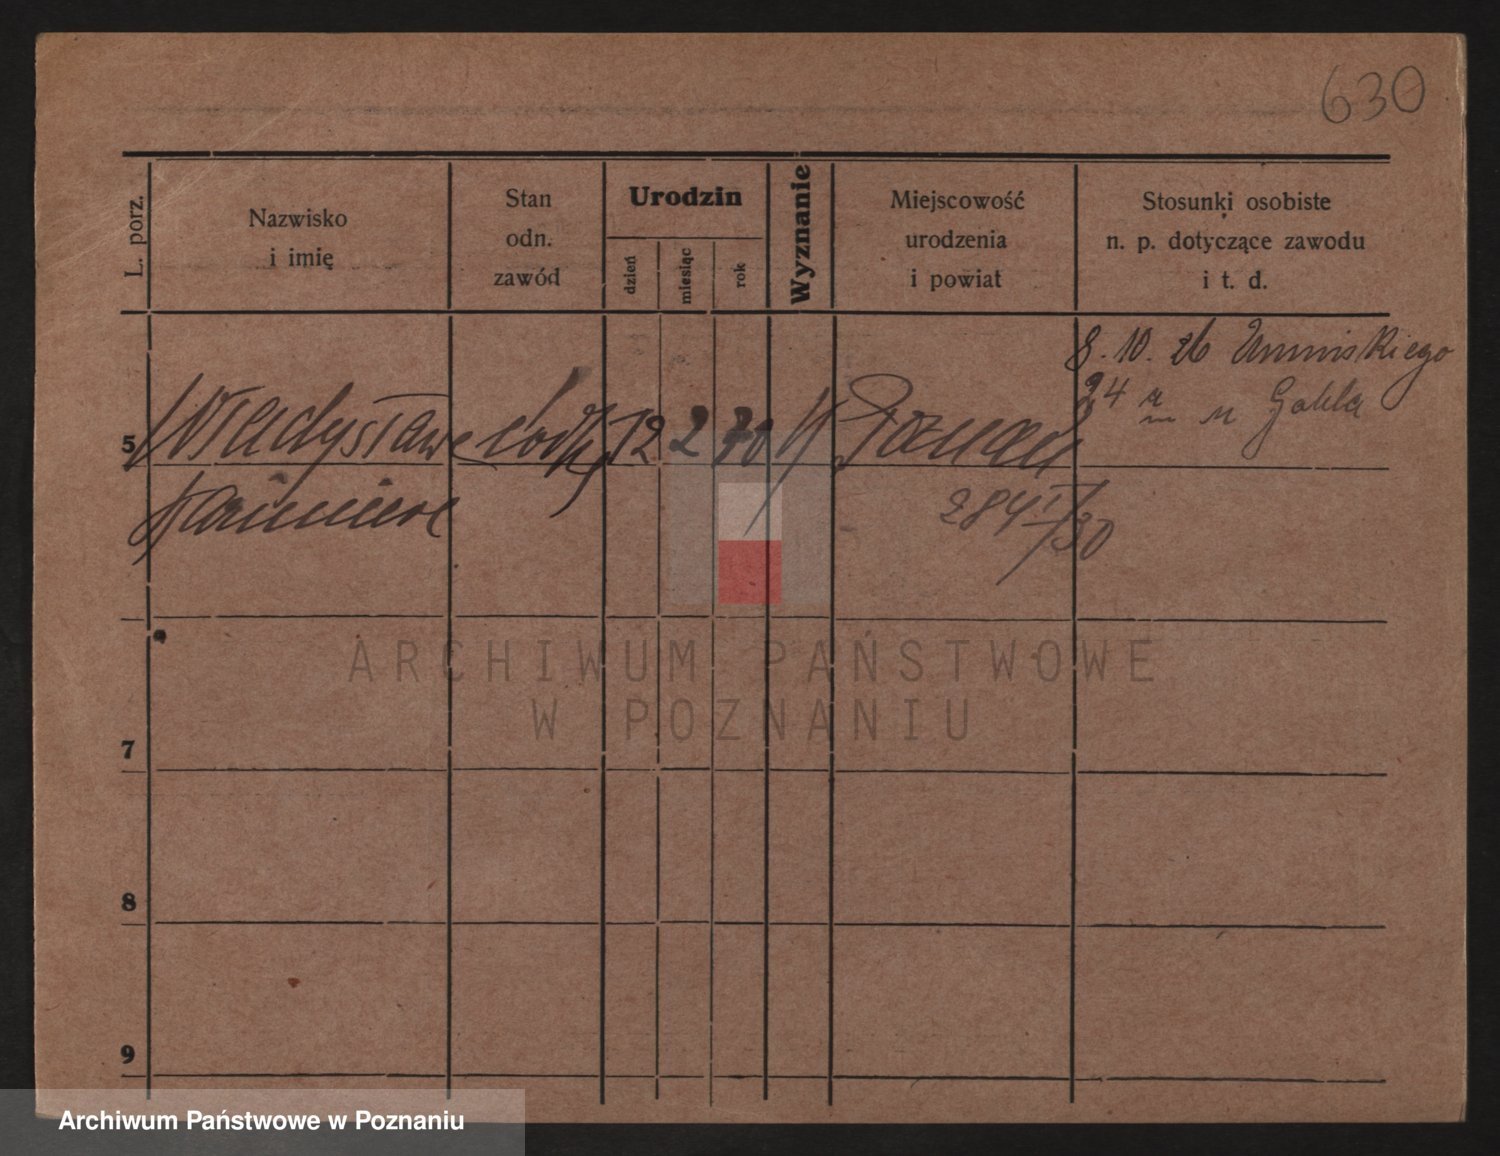 630
L. porz.
Nazwisko
i imię
Stan
odn.
zawód
Urodzin
dzień
miesiąc
rok
Wyznanie
Miejscowość
urodzenia
i powiat
Stosunki osobiste
n. p. dotyczące zawodu
i t. d.
8. 10. 26 Umińskiego
24 a
u
5 Władysław 12 2 30 Poznań
Kazimierz
284 I/30
ARCHIWUM PAŃSTWOWE
W POZNANIU
7
8
9
Archiwum Państwowe w Poznaniu